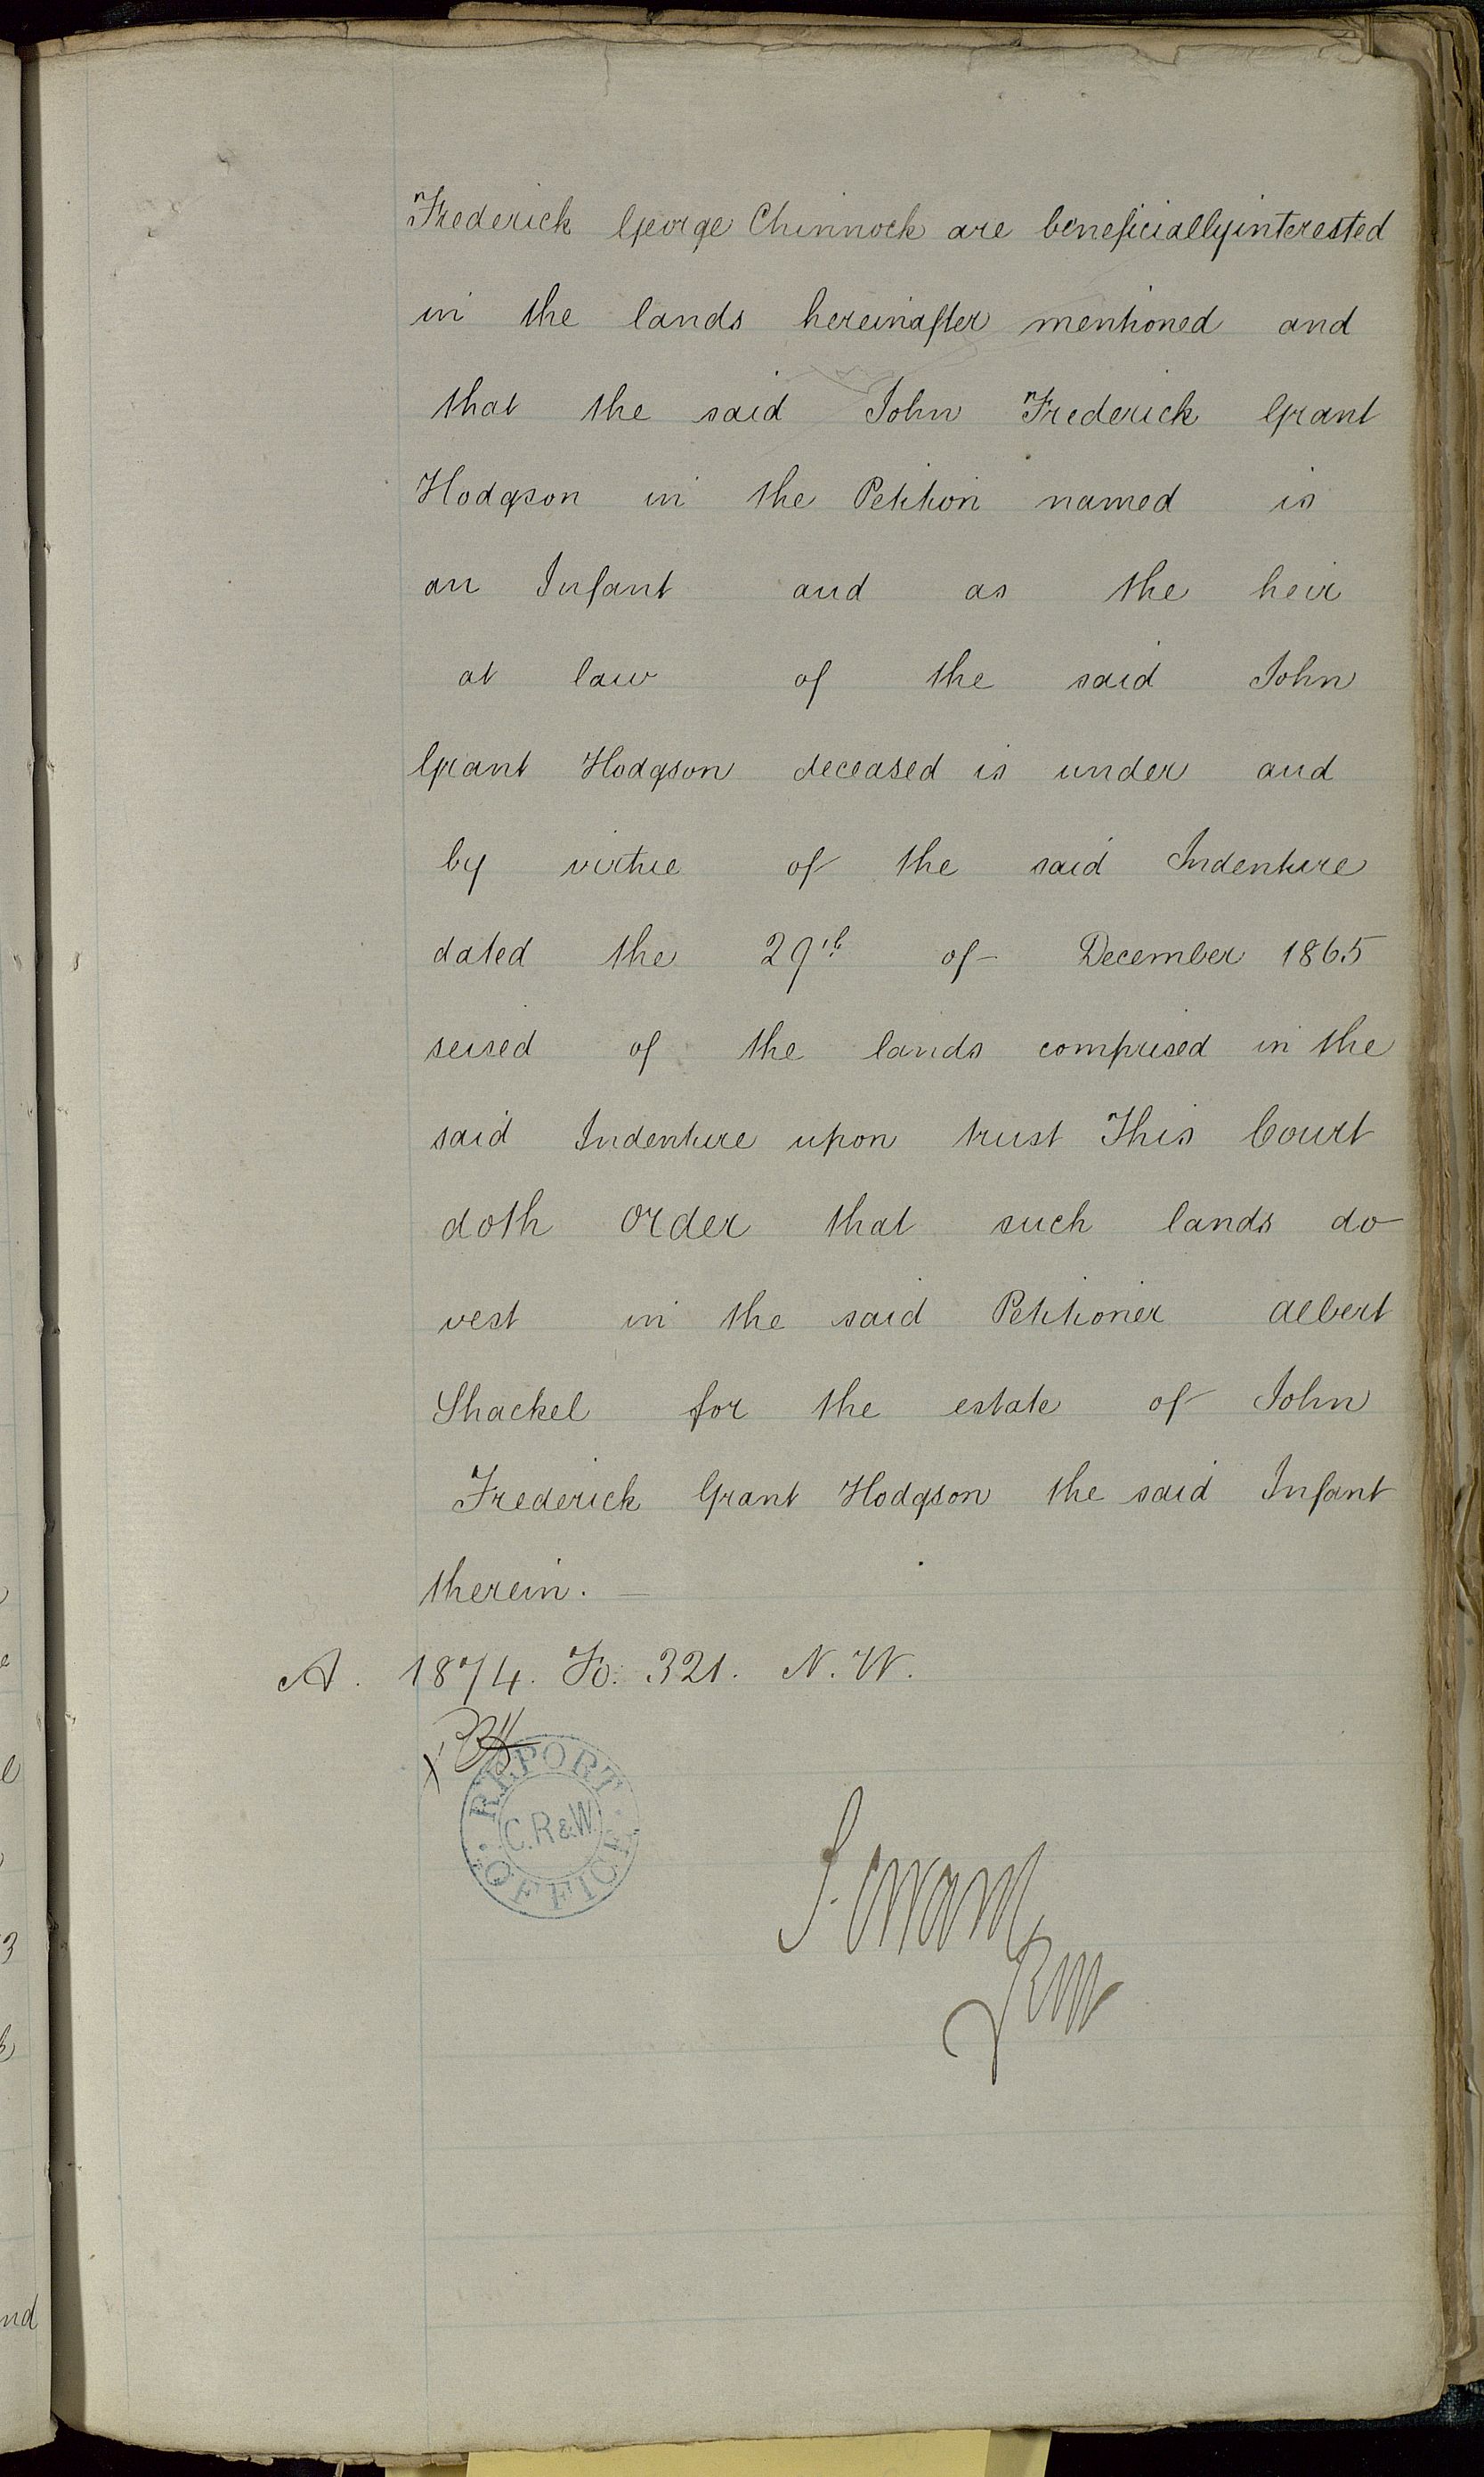 Frederick George Chinnock are beneficially interested
in the lands hereinafter mentioned and
that the said John Frederick Grant
Hodgson in the Petition named is
an Infant and as the heir
at law of the said John
Grant Hodgson deceased is under and
by virtue of the said Indenture
dated the 29th of December 1865
seised of the lands comprised in the
said Indenture upon trust This Court
doth order that such lands do
vest in the said Petitioner Albert
Shackel for the estate of John
Frederick Grant Hodgson the said Infant
therein.
A. 1874. Fo: 321. N. W.
REPORT OFFICE
C.R&W
nd